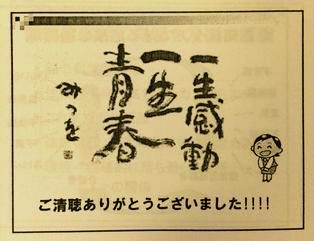 一生感動
一生
青春
みつを
ご清聴ありがとうございました!!!!